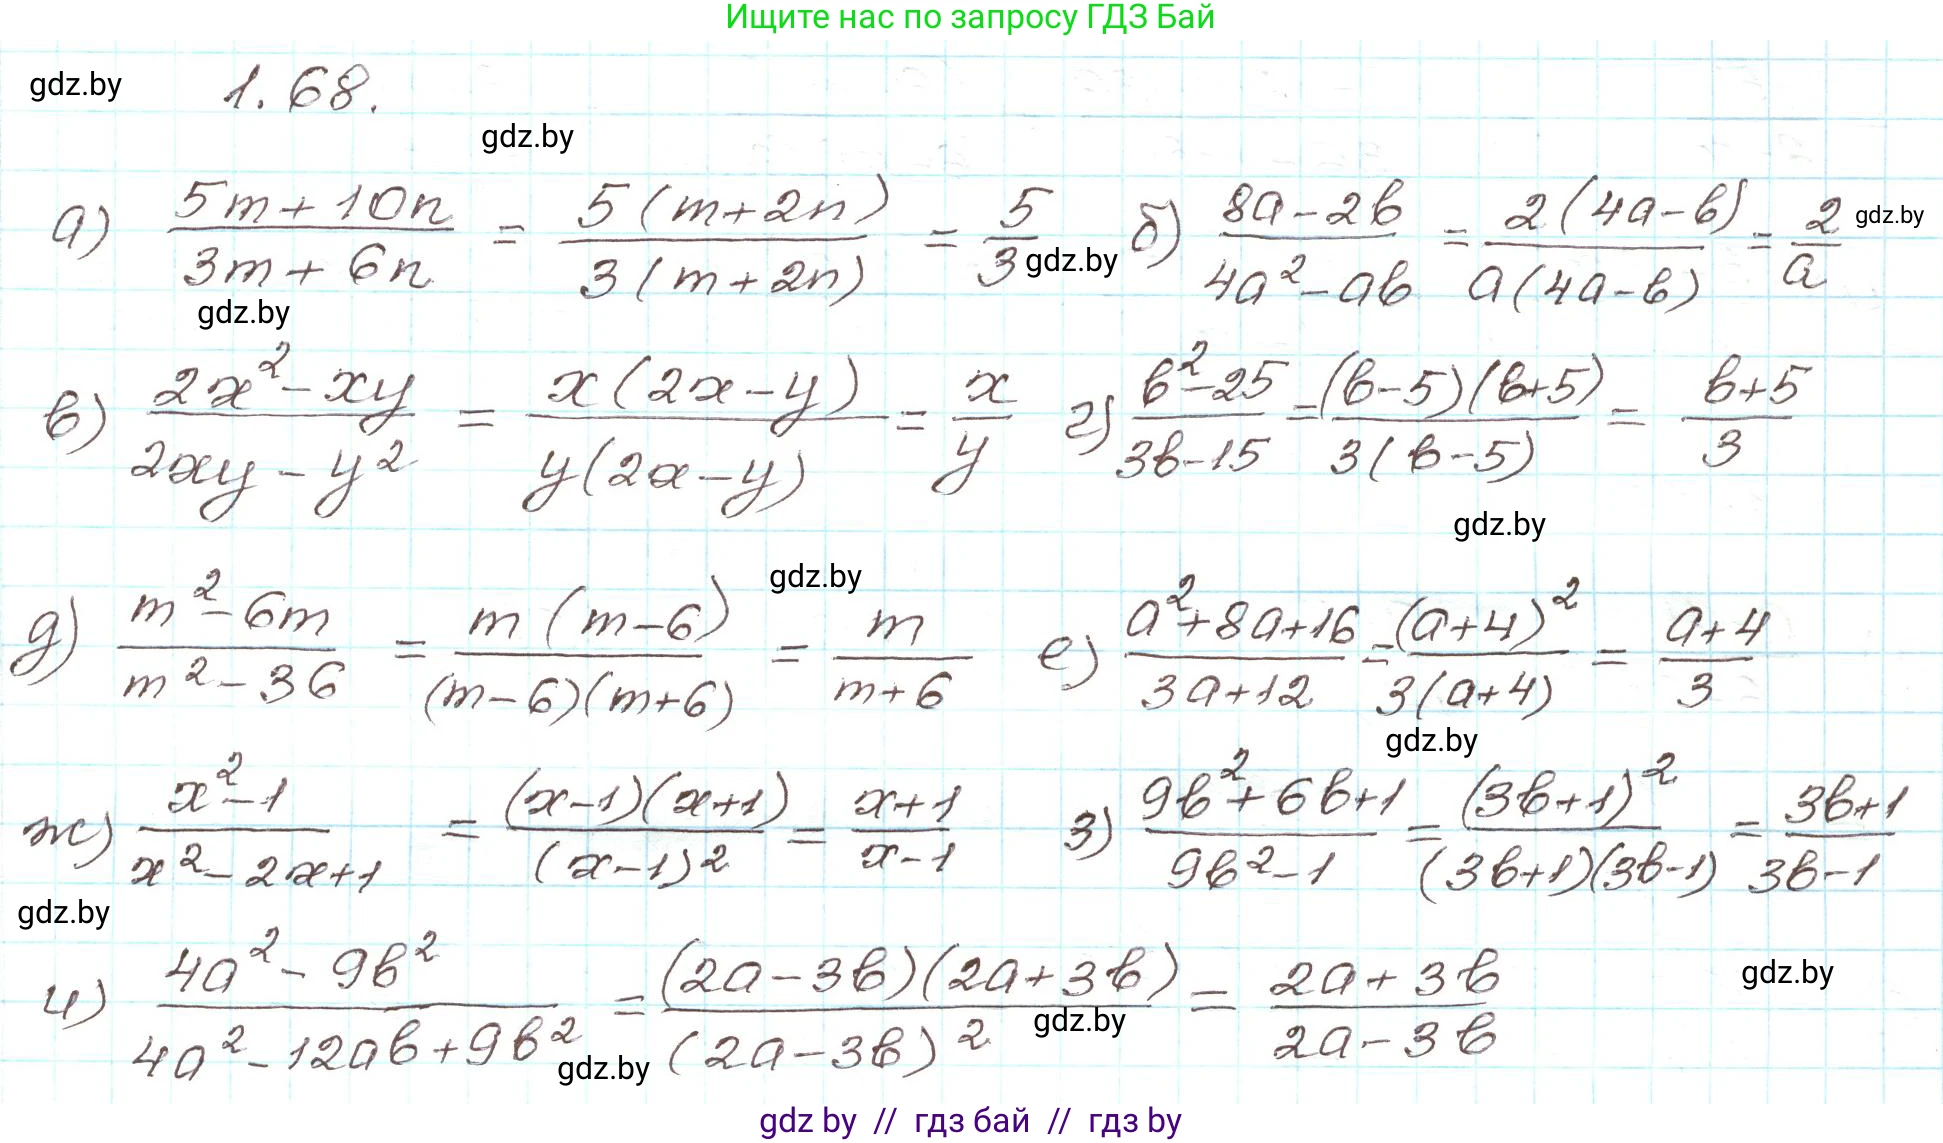 Ищите нас по запросу ГДЗ Бай
gdz.by 1.68.
gdz.by
а) (5m+10n)/(3m+6n) = 5(m+2n)/3(m+2n) = 5/3 gdz.by б) (8a-2b)/(4a²-ab) = 2(4a-b)/a(4a-b) = 2/a gdz.by
gdz.by
в) (2x²-xy)/(2xy-y²) = x(2x-y)/y(2x-y) = x/y г) (b²-25)/(3b-15) = (b-5)(b+5)/3(b-5) = (b+5)/3
gdz.by
gdz.by
д) (m²-6m)/(m²-36) = m(m-6)/(m-6)(m+6) = m/(m+6) е) (a²+8a+16)/(3a+12) = (a+4)²/3(a+4) = (a+4)/3
gdz.by
ж) (x²-1)/(x²-2x+1) = (x-1)(x+1)/(x-1)² = (x+1)/(x-1) з) (9b²+6b+1)/(9b²-1) = (3b+1)²/(3b+1)(3b-1) = (3b+1)/(3b-1)
gdz.by
и) (4a²-9b²)/(4a²-12ab+9b²) = (2a-3b)(2a+3b)/(2a-3b)² = (2a+3b)/(2a-3b) gdz.by
gdz.by
gdz.by
gdz by // гдз бай // гдз by